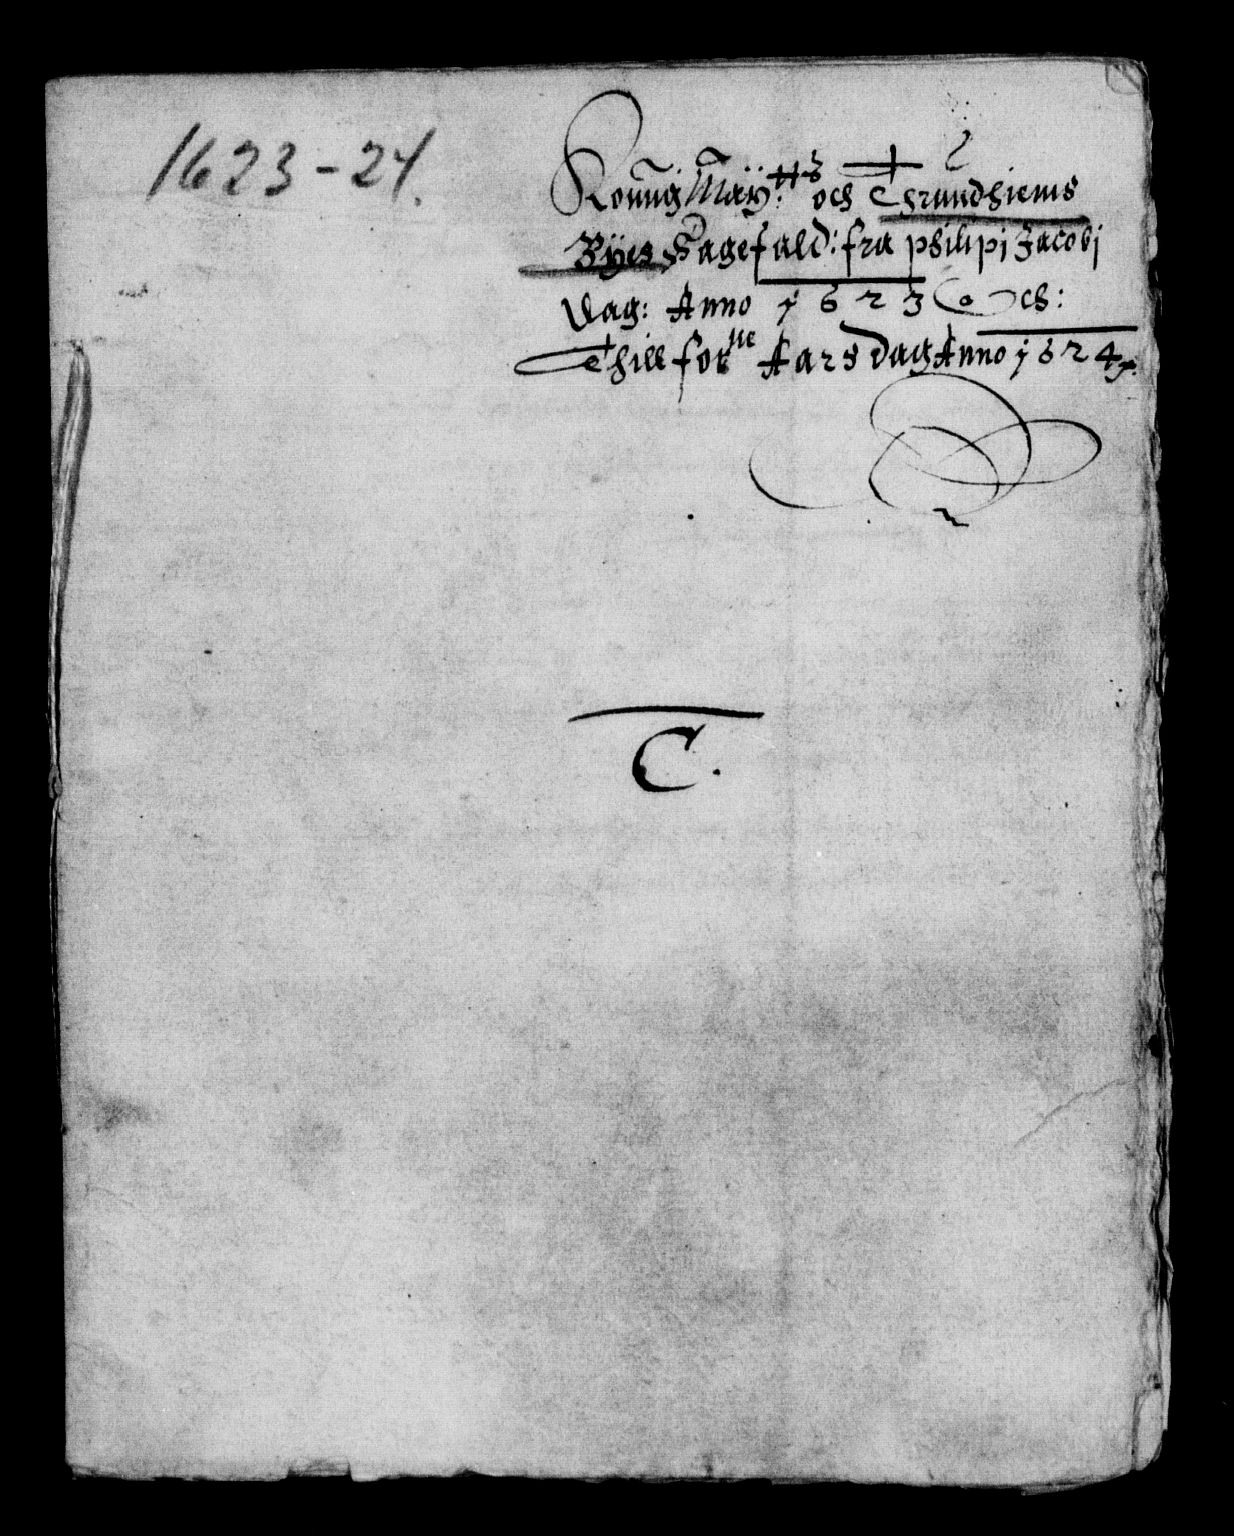 1623-24.
Konnig Maÿ:tts och Thrundhiems
Bÿes Sagefald: fra philipi Jacobj
Dag: Anno 1623 Och:
Thill forne Aars dag Anno 1624
C.